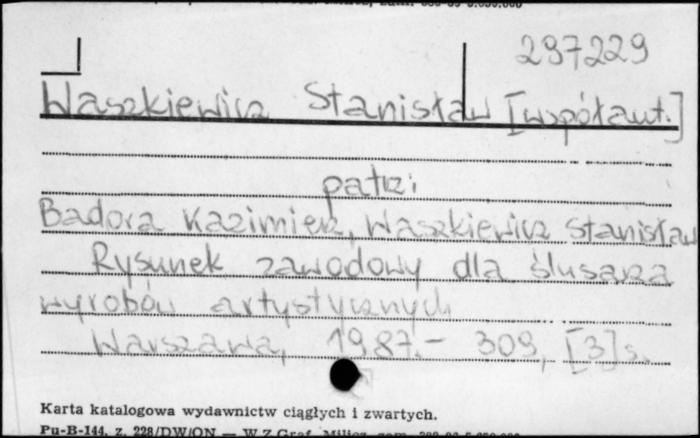 297229
Waszkiewicz Stanisław [współaut.]
patrz:
Badora Kazimierz, Waszkiewicz Stanisław
Rysunek zawodowy dla ślusarza
wyrobów artystycznych
Warszawa, 1987.- 309, [3] s.
Karta katalogowa wydawnictw ciągłych i zwartych.
Pu-B-144, z. 228/DW/ON — W.Z.Graf. Milicz, zam.